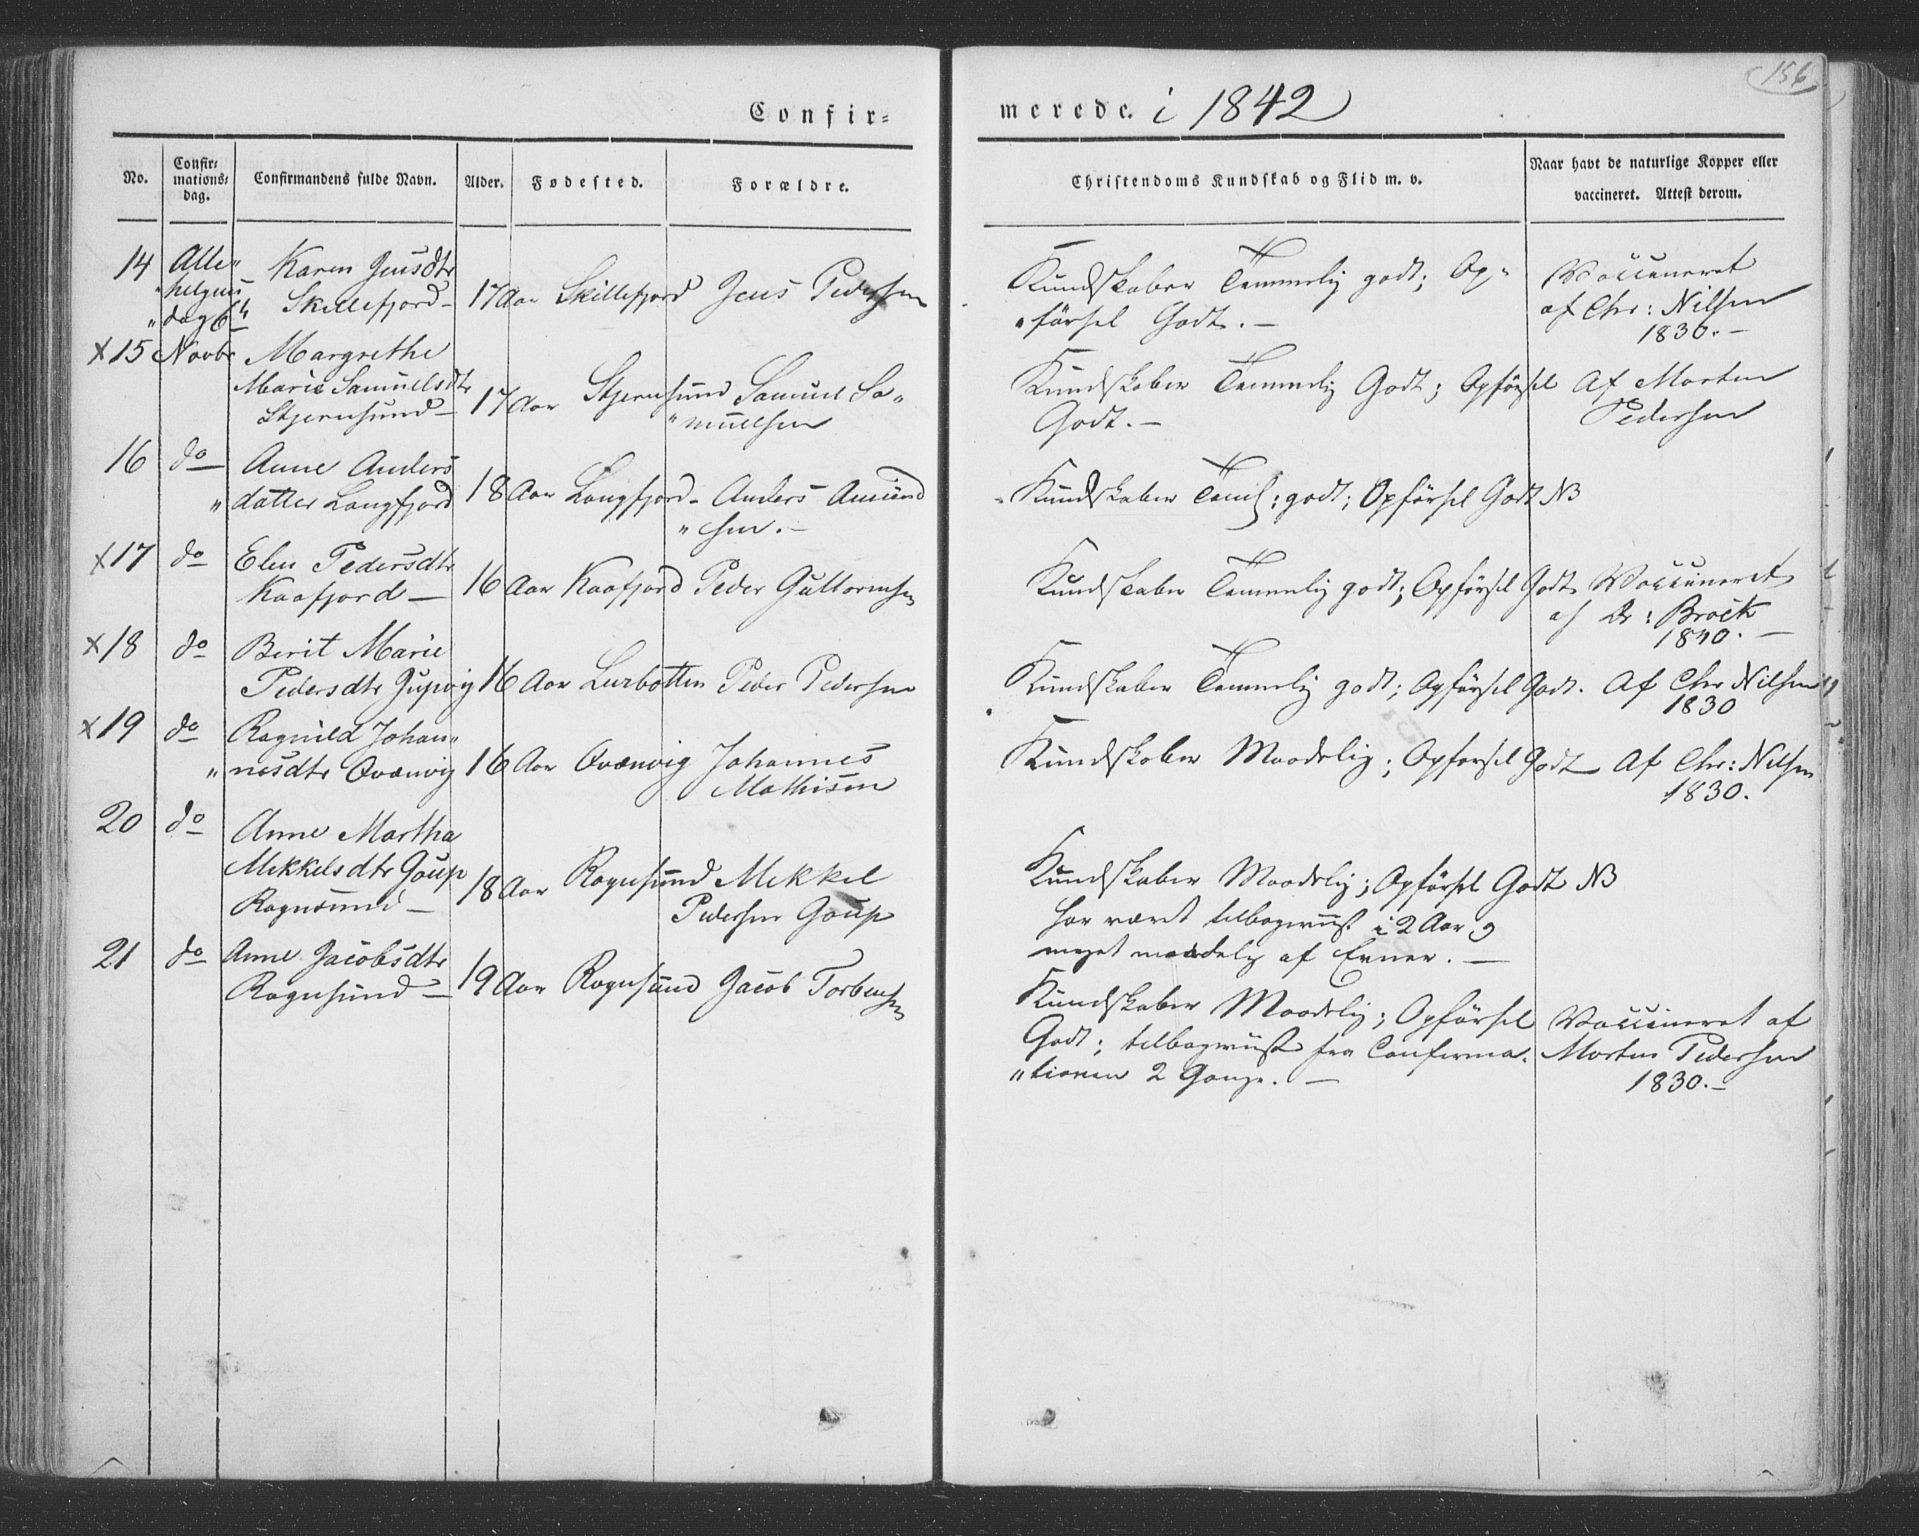 156
Confir=
merede. i 1842
No.
Confir=
mations=
dag.
Confirmandens fulde Navn.
Alder.
Fødested.
Forældre.
Christendoms Kundskab og Flid m. v.
Naar havt de naturlige Kopper eller
vaccineret. Attest derom.
14 Alle" Karen Jensdtr
"helgens Skillefjord— 17 Aar Skillefjord Jens Pedersen
"dag 6te
Kundskaber Temmelig godt; Op"
"førsel Godt. —
Vaccineret
af Chr: Nilsen
1830. —
x15 Novbr Margrethe
Marie Samuelsdtr
Stjernsund— 17 Aar Stjernsund Samuel Sa"
"muelsen
Kundskaber Temmelig Godt; Opførsel
Godt. —
Af Morten
Pedersen
16 do Anne Anders
"datter Langfjord 18 Aar Langfjord- Anders Amund
"sen. —
Kundskaber Teml: godt; Opførsel Godt NB
x17 do Elen Pedersdtr
Kaafjord— 16 Aar Kaafjord Peder Guttormsen
Kundskaber Temmelig godt; Opførsel Godt
Vaccineret
af Dr: Brock
1840. —
x18 do Berit Marie
Pedersdtr 16 Aar Lerbotten Peder Pedersen
Kundskaber Temmelig godt; Opførsel Godt.
Af Chr Nilsen
1830
x19 do Ragnild Johan"
"nesdtr Qvænvig 16 Aar Qvænvig Johannes
Mathisen
Kundskaber Maadelig; Opførsel Godt
Af Chr: Nilsen
1830.
20 do Anne Martha
Mikkelsdtr Goup
Rognsund— 18 Aar Rognsund Mikkel
Pedersen Goup
Kundskaber Maadelig; Opførsel Godt NB
har været tilbageviist i 2 Aar og
meget maadelig af Evner. —
21 do Anne Jacobsdtr
Rognsund— 19 Aar Rognsund Jacob Torbensen
Kundskaber Maadelig; Opførsel
Godt; tilbageviist fra Confirma-
"tionen 2 Gange. —
Vaccineret af
Morten Pedersen
1830. —